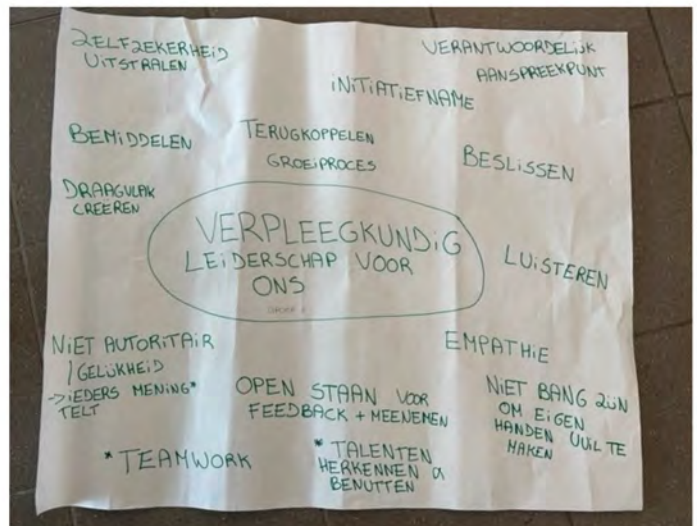 ZELFZEKERHEID
UITSTRALEN
VERANTWOORDELIJK
AANSPREEKPUNT
INITIATIEFNAME
BEMIDDELEN
TERUGKOPPELEN
GROEIPROCES
BESLISSEN
DRAAGVLAK
CREËREN
VERPLEEGKUNDIG
LEIDERSCHAP VOOR
ONS
LUISTEREN
NIET AUTORITAIR
/ GELIJKHEID
-> IEDERS MENING*
TELT
EMPATHIE
OPEN STAAN VOOR
FEEDBACK + MEENEMEN
NIET BANG ZIJN
OM EIGEN
HANDEN VUIL TE
MAKEN
* TEAMWORK
* TALENTEN
HERKENNEN &
BENUTTEN